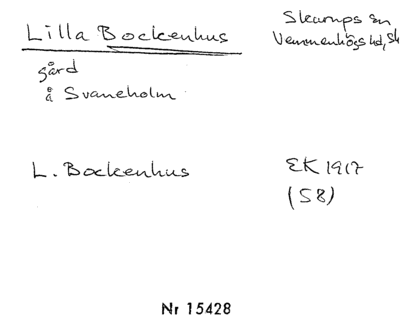 Lilla Bockenhus
Skurups sn
Vemmenhögs hd, Sk
gård
å Svaneholm
L. Bockenhus
EK 1917
(S8)
Nr 15428